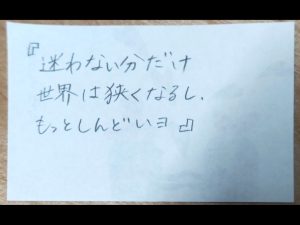 『迷わない分だけ
世界は狭くなるし、
もっとしんどいヨ』